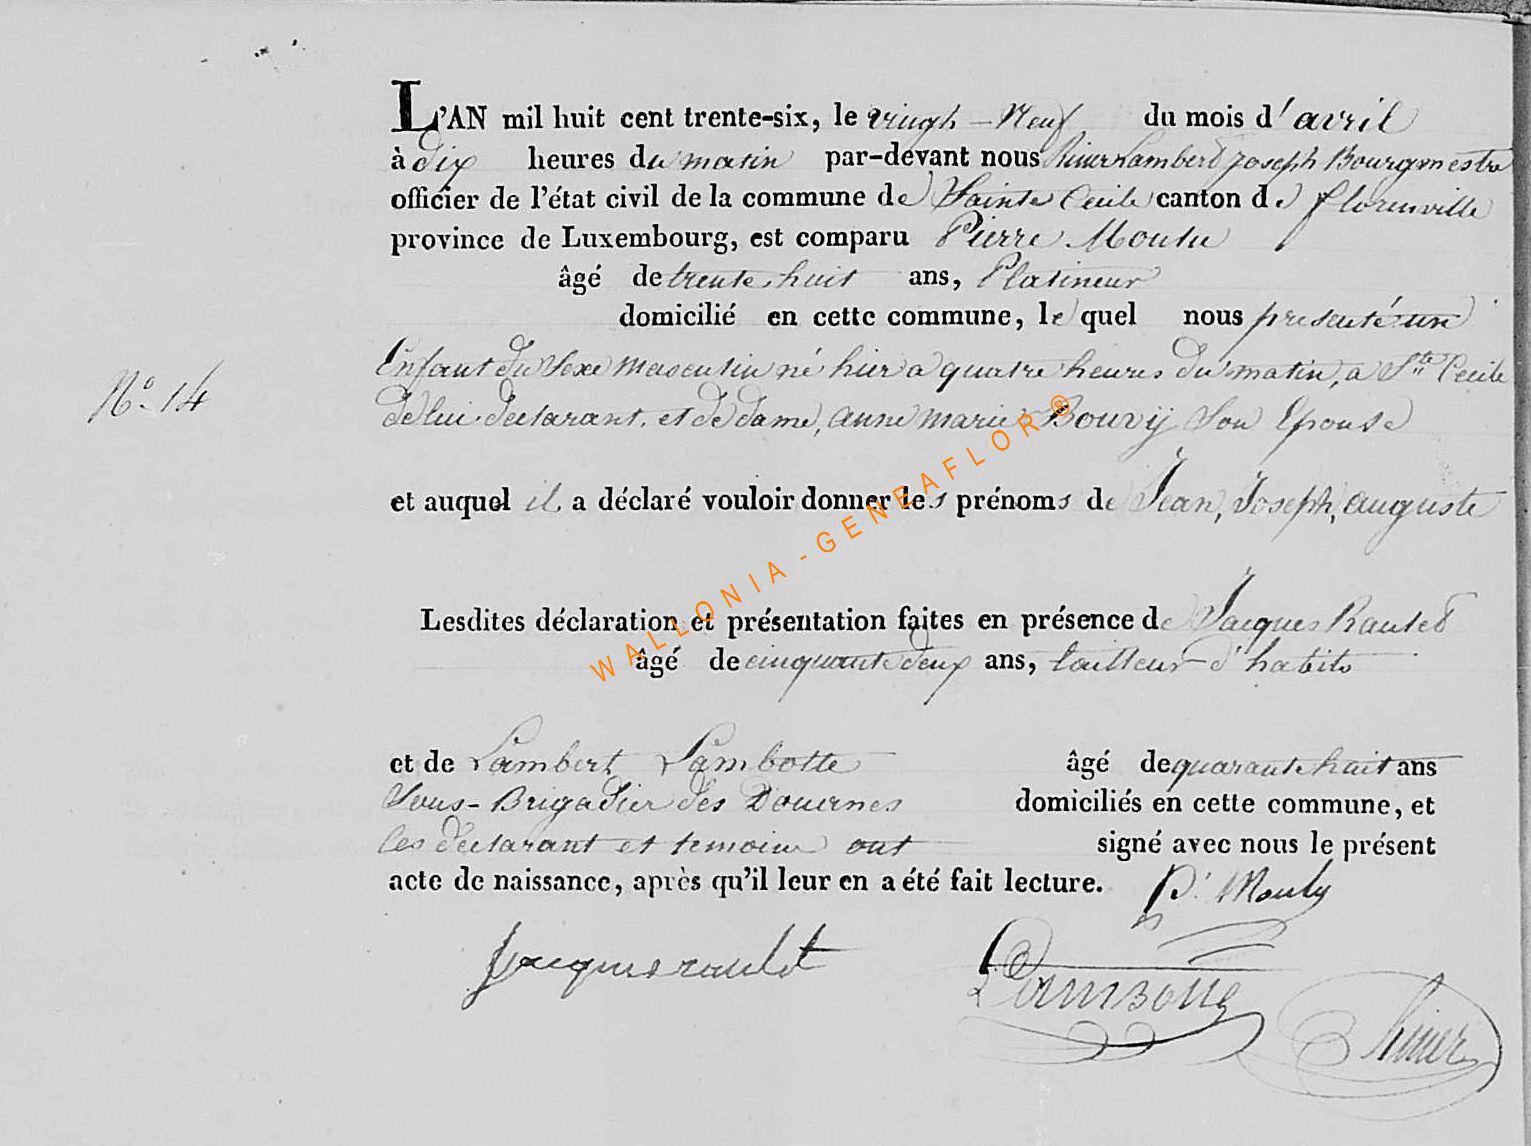 L'AN mil huit cent trente-six, le vingt-Neuf du mois d'avril
à dix heures du matin par-devant nous Lambert Joseph Bourgmestre
officier de l'état civil de la commune de Sainte Cecile canton de florenville
province de Luxembourg, est comparu Pierre Moulu
âgé de trente huit ans, Platineur
domicilié en cette commune, le quel nous presenté un
Enfant du Sexe Masculin né hier a quatre heures du matin, a Ste Cecile
N° 14
de lui declarant, et de dame, anne marie Bouvy Son Epouse
et auquel il a déclaré vouloir donner les prénoms de Jean, Joseph, auguste
Lesdites déclaration et présentation faites en présence de Jacques Raulet
âgé de cinquante deux ans, tailleur d'habits
et de Lambert Lambotte âgé de quarante huit ans
Sous-Brigadier des Douanes domiciliés en cette commune, et
les declarant et temoins ont signé avec nous le présent
acte de naissance, après qu'il leur en a été fait lecture. P. Moulu
jacques raulet
Lambotte
WALLONIA - GENEAFLOR ®